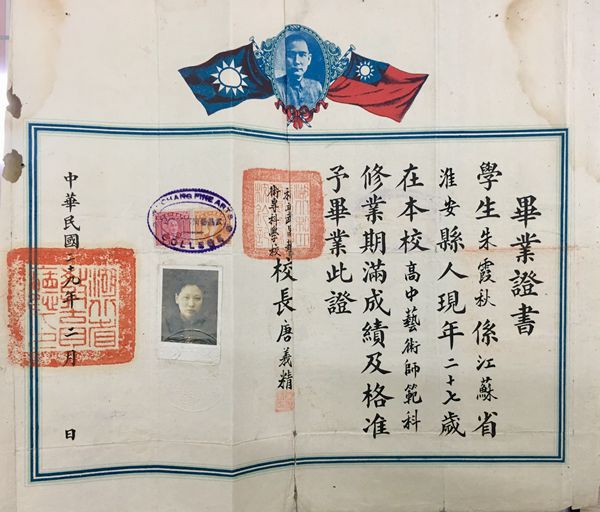 畢業證書
學生朱霞秋係江蘇省
淮安縣人現年二十七歲
在本校高中藝術師範科
修業期滿成績及格准
予畢業此證
私立武昌藝
術專科學校
校長唐義精
中華民國二九年二月 日
CHANG FINE ARTS
COLLEGE